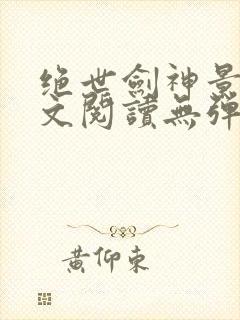 绝世劍神景
文閱讀無彈
黃仰東